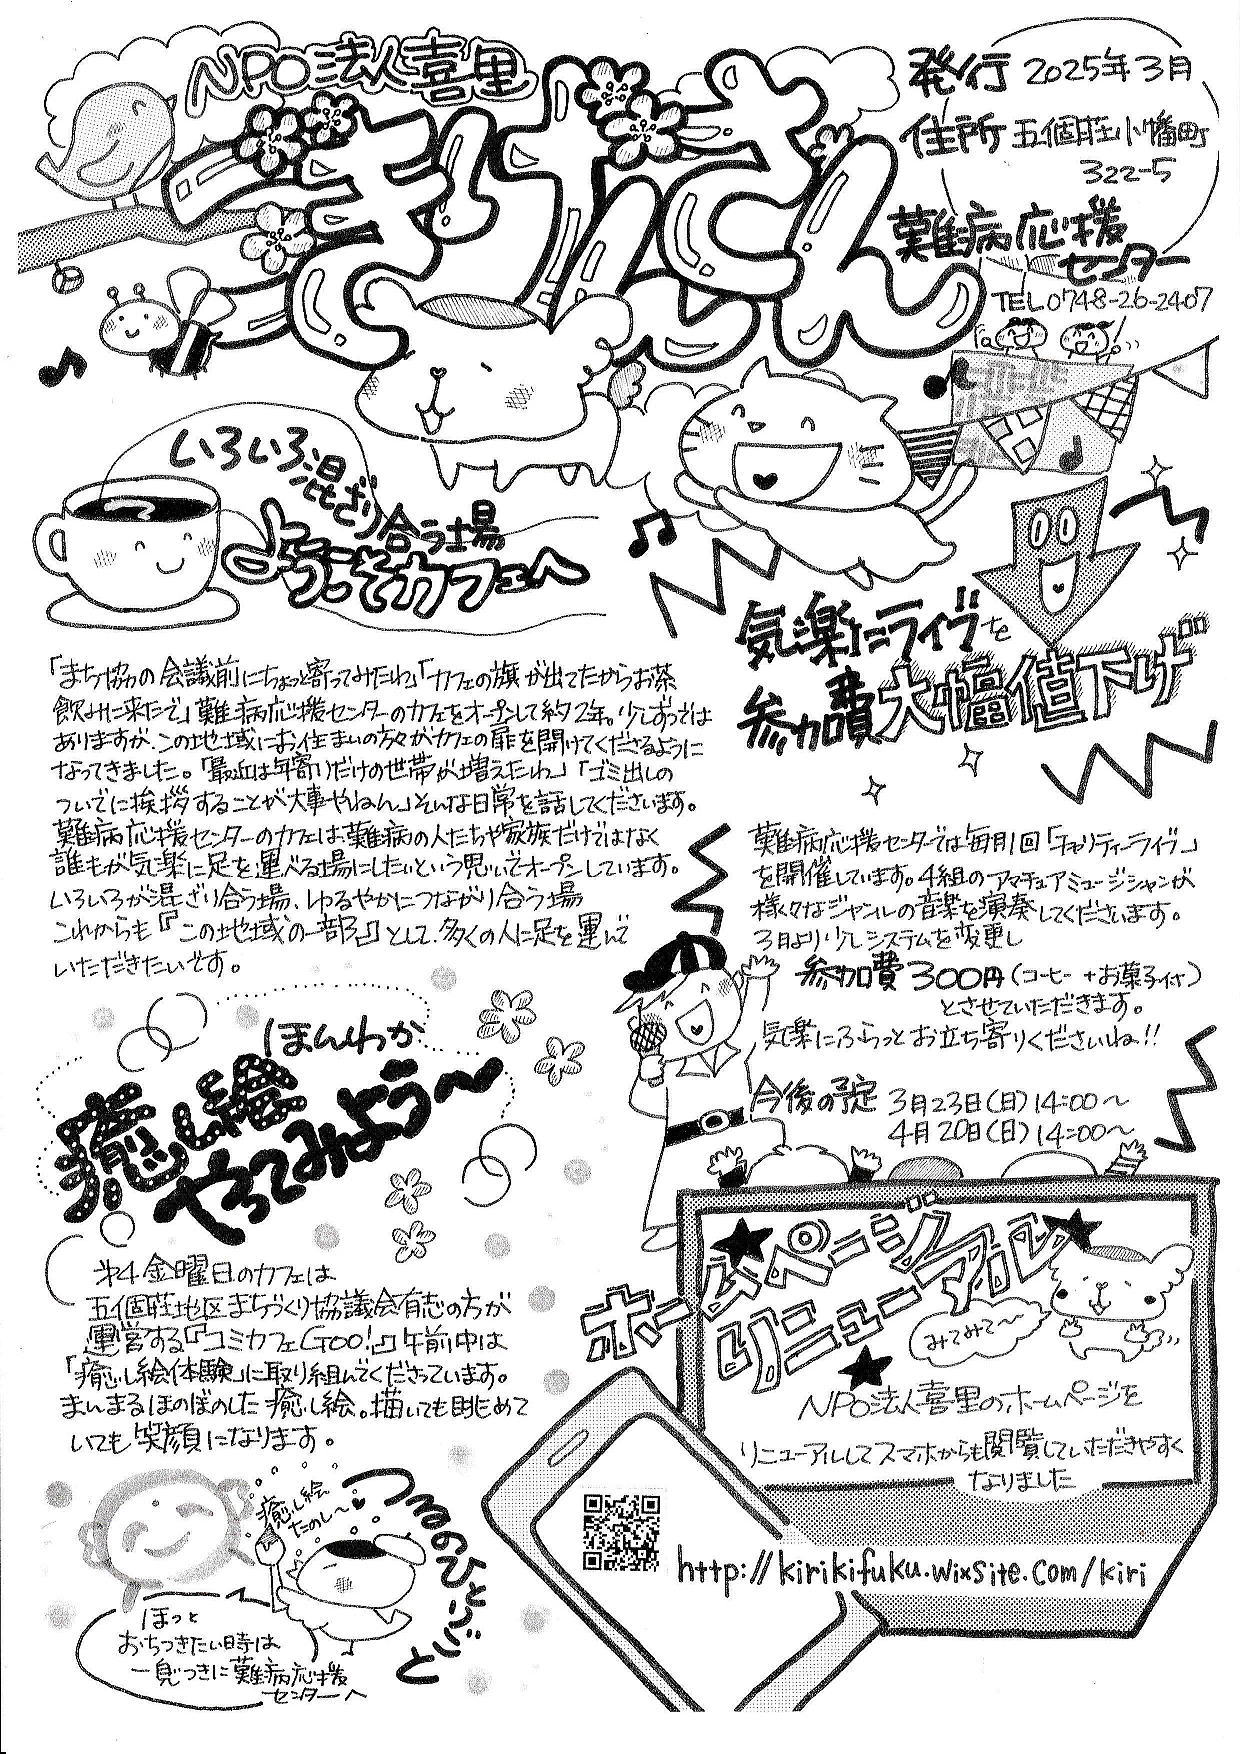 NPO法人喜里
発行 2025年3月
住所 五個荘小幡町
322-5
難病応援
センター
TEL 0748-26-2407
いろいろ混ざり合う場
ようこそカフェへ
「まち協の会議前にちょっと寄ってみたわ」「カフェの旗が出てたからお茶
飲みに来たで」難病応援センターのカフェをオープンして約2年。少しずつでは
ありますが、この地域にお住まいの方々がカフェの扉を開けてくださるように
なってきました。「最近は年寄りだけの世帯が増えたわ」「ゴミ出しの
ついでに挨拶することが大事やねん」そんな日常を話してくださいます。
難病応援センターのカフェは、難病の人たちや家族だけではなく
誰もが気楽に足を運べる場にしたいという思いでオープンしています。
いろいろが混ざり合う場、ゆるやかにつながり合う場
これからも『この地域の一部』として、多くの人に足を運んで
いただきたいです。
気楽にライブを
参加費大幅値下げ
難病応援センターでは毎月1回「チャリティーライブ」
を開催しています。4組のアマチュアミュージシャンが
様々なジャンルの音楽を演奏してくださいます。
3月より少しシステムを変更し
参加費300円(コーヒー+お菓子付)
とさせていただきます。
気楽にふらっとお立ち寄りくださいね!!
今後の予定 3月23日(日)14:00〜
4月20日(日)14:00〜
ほんわか
癒し絵
やってみよう〜
第4金曜日のカフェは
五個荘地区まちづくり協議会有志の方が
運営する『コミカフェGOO!』午前中は
「癒し絵体験」に取り組んでくださっています。
まんまるほのぼのした癒し絵。描いても眺めて
いても笑顔になります。
癒し絵
たのし〜
つるのひとりごと
ほっと
おちつきたい時は
一息つきに難病応援
センターへ
ホームページ
リニューアル
みてみて〜
NPO法人喜里のホームページを
リニューアルしてスマホからも閲覧していただきやすく
なりました
http://kirikifuku.wixsite.com/kiri